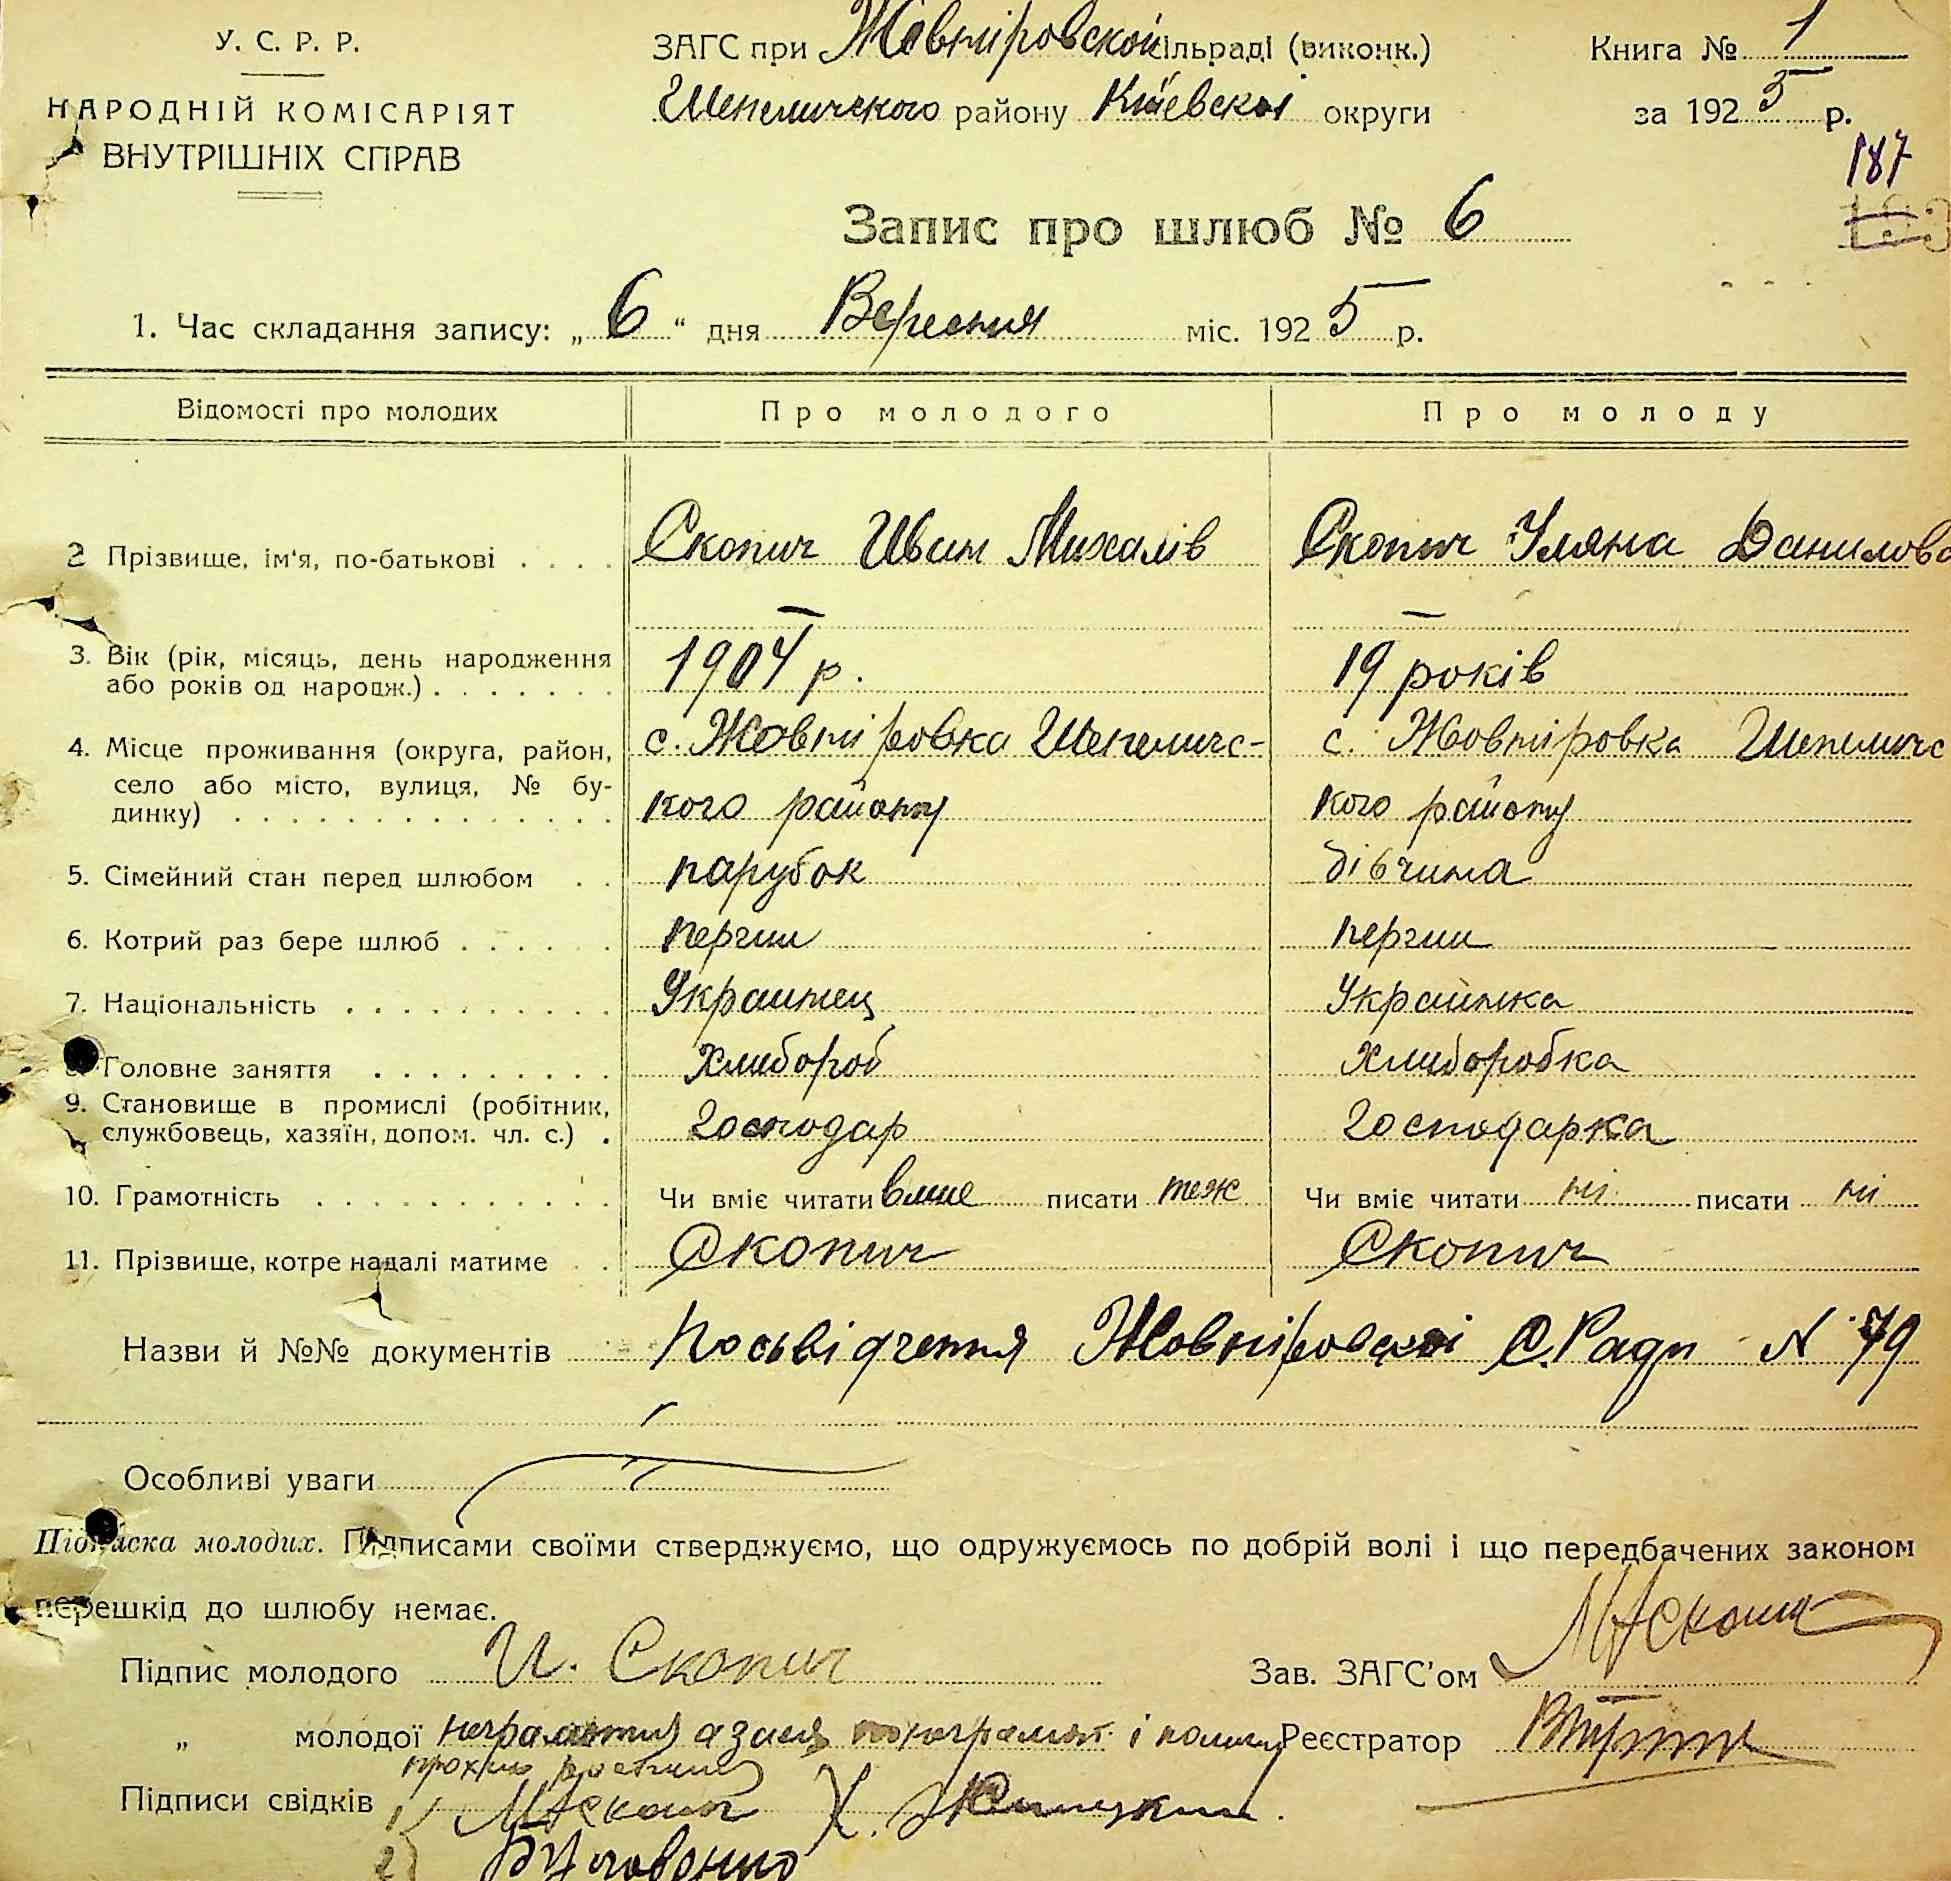 У. С. Р. Р.
НАРОДНІЙ КОМІСАРІЯТ
ВНУТРІШНІХ СПРАВ
ЗАГС при Жовніровскои сільраді (виконк.)
Шепеличского району Київскоі округи
Книга № 1
за 1925 р.
187
Запис про шлюб № 6
1. Час складання запису: „6“ дня Вересния міс. 1925 р.
Відомості про молодих Про молодого Про молоду
2 Прізвище, ім'я, по-батькові . . . . Скопич Иван Михалів Скопич Уляна Данилова
3. Вік (рік, місяць, день народження
або років од народж.) . . . . . . . 1904 р. 19 років
4. Місце проживання (округа, район, с. Жовніровка Шепеличс- с. Жовніровка Шепеличс
село або місто, вулиця, № бу-
динку) . . . . . . . . . . . . . . кого району кого району
5. Сімейний стан перед шлюбом . . парубок дівчина
6. Котрий раз бере шлюб . . . . . . перший перший
7. Національність . . . . . . . . . . Украинец Украинка
8. Головне заняття . . . . . . . . . Хлибороб Хлиборобка
9. Становище в промислі (робітник,
службовець, хазяїн, допом. чл. с.) . Господар Господарка
10. Грамотність . . . . . . . . . . . Чи вміє читати вмие писати теж Чи вміє читати ні писати ні
11. Прізвище, котре надалі матиме . . Скопич Скопич
Назви й №№ документів Посьвідчення Жовніровскоі С.Ради N 79
Особливі уваги
Підписка молодих. Підписами своїми стверджуємо, що одружуємось по добрій волі і що передбачених законом
перешкід до шлюбу немає.
Підпис молодого И. Скопич Зав. ЗАГС'ом МАСкопич
„ молодої неграмотня а за нея і Реєстратор
Підписи свідків 1) МАСкопич
2)